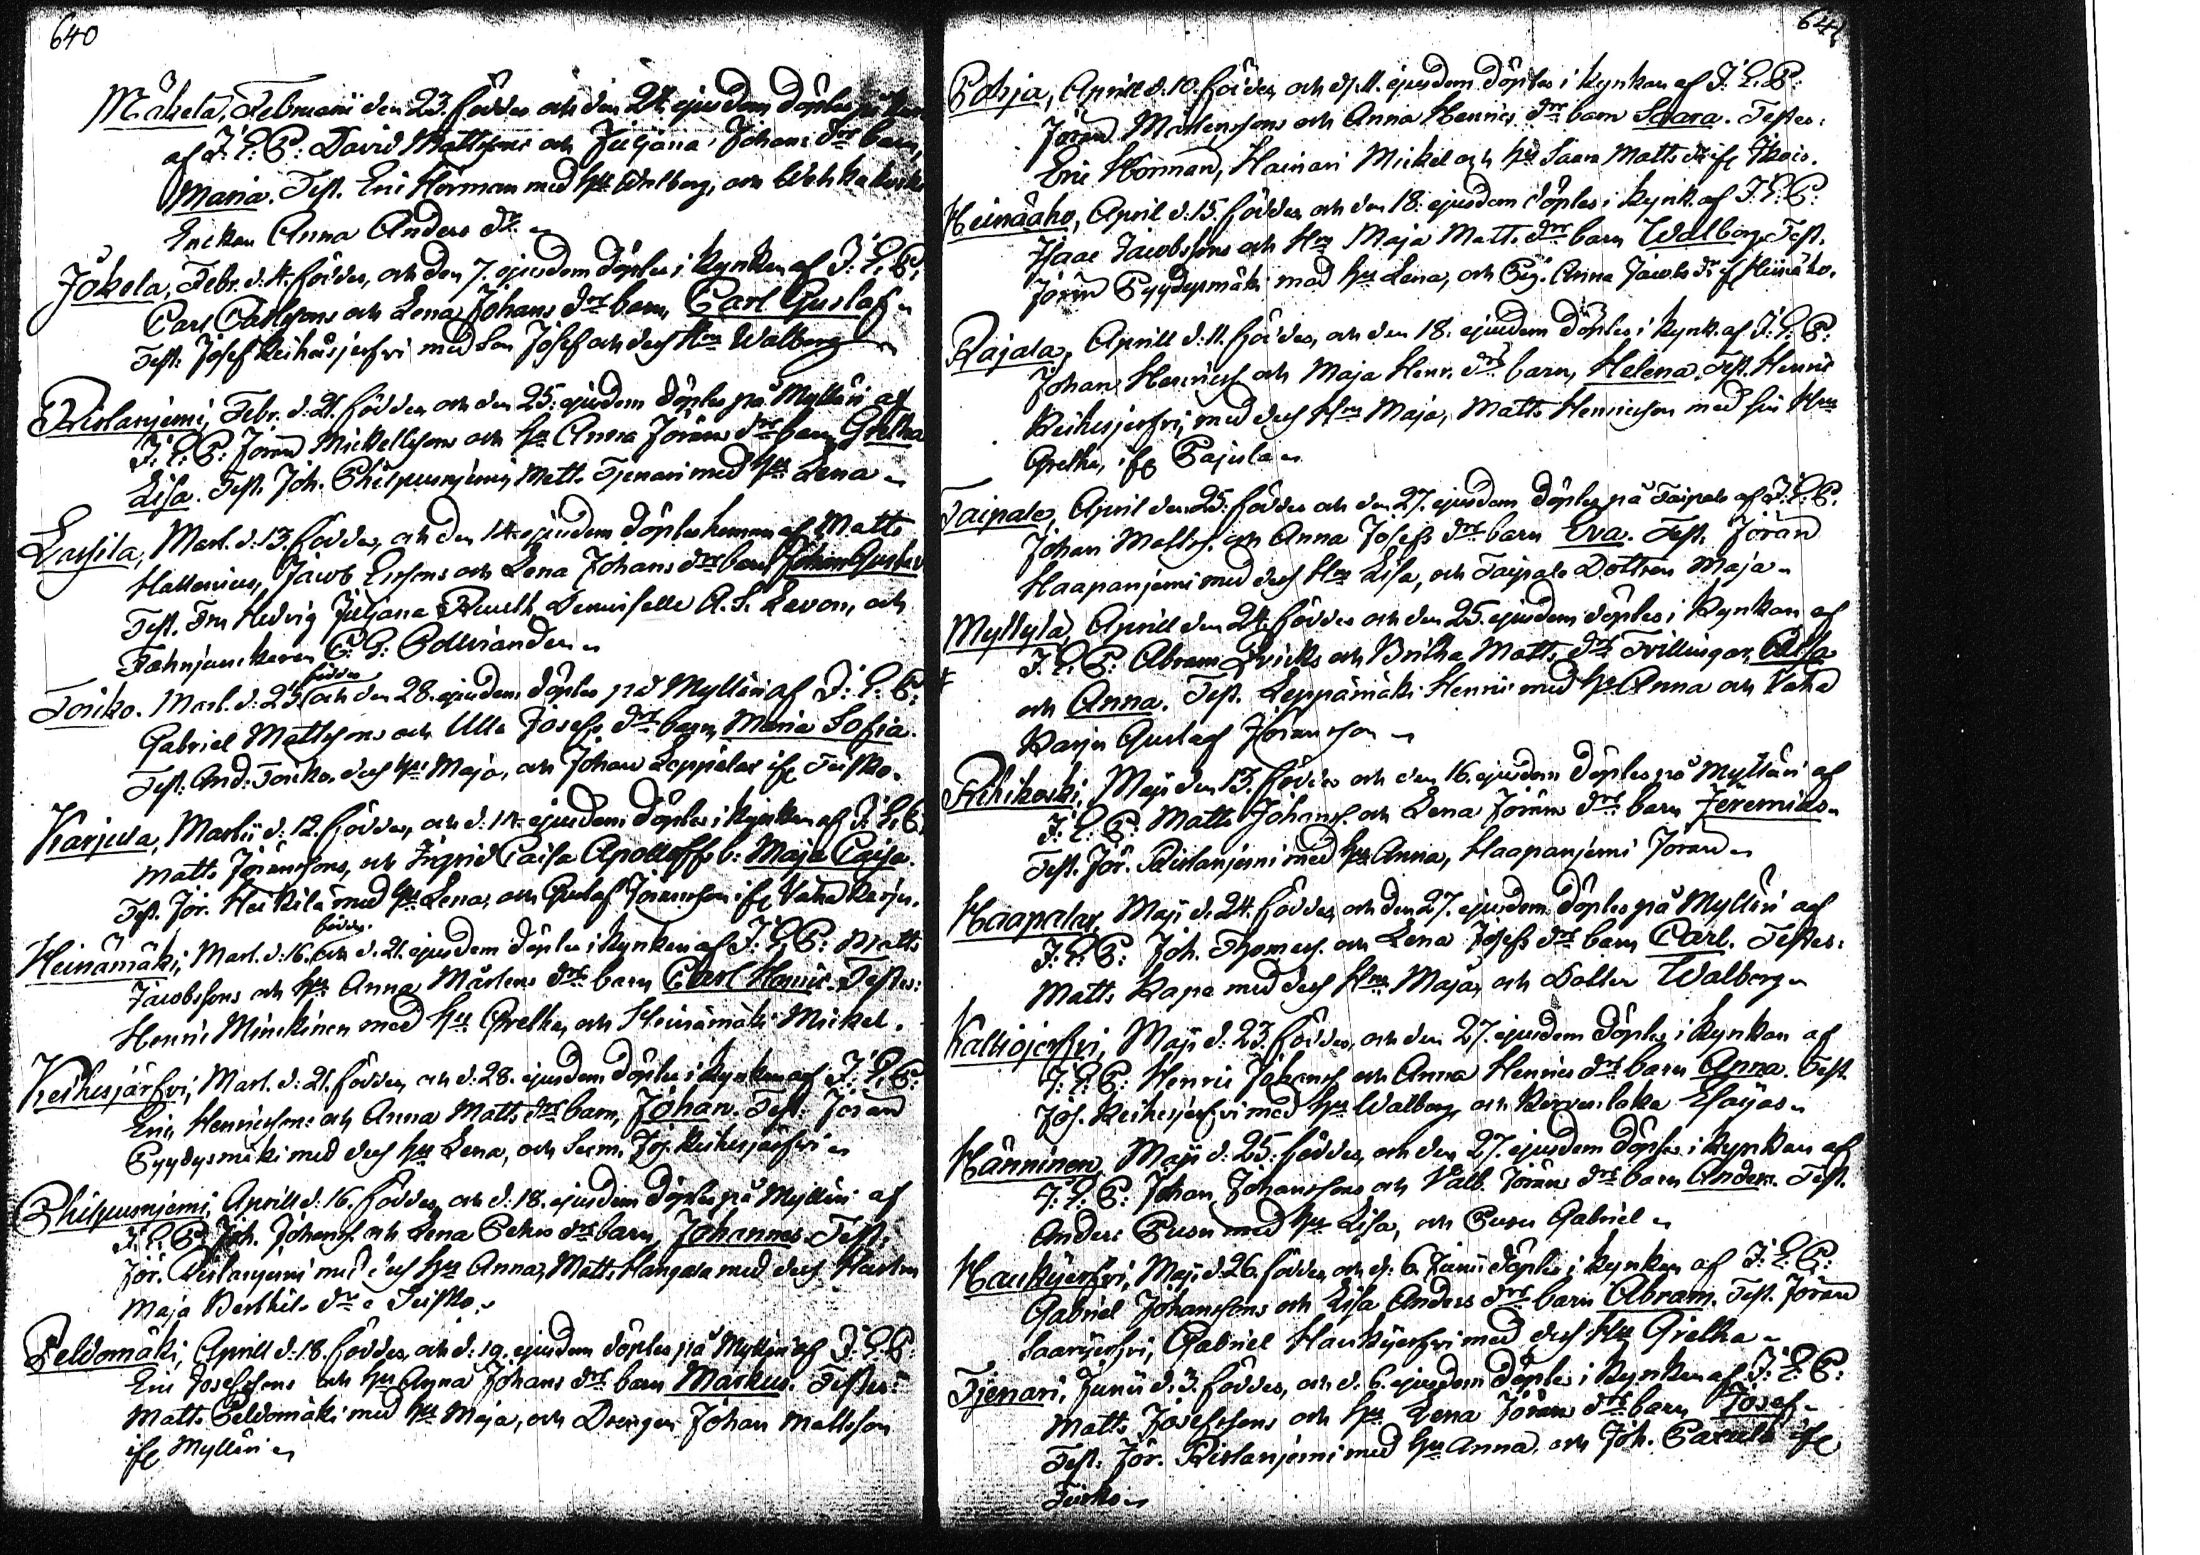 640
Mäkelä, Februarii den 23. föddes och den 24. ejusdem döptes på
af J: E: P: David Mattssons och Juliana Johans dr barn,
Maria. Test. Eric Horman med hu Walborg, och
Enckan Anna Anders dr
Jokela, Febr. d. 4. föddes, och den 7. ejusdem döptes i kyrkan af J: E: P:
Carl Carlssons och Lena Johans drs barn, Carl Gustaf
Test. Josef Keihäsjerfvi med Son Josef och dess Hu Walborg
Ristanjemi, Febr. d. 21. föddes, och den 25. ejusdem döptes på Mylläri af
J: E: P: Jöran Mickellssons och hu Anna Jörans drs barn Gretha
Lisa. Test. Joh. Philpusnjemi, Matts Tjenari med hu Lena
Lassila, Mart. d. 13. föddes, och den 14. ejusdem döptes hemma af Matts
Hallenius, Jacob Erssons och Lena Johans drs barn Johan Gustav
Test. Fru Hedvig Juliana Reuth, Demoiselle A. S. Levon, och
Fahnjunckaren C: G: Polviander
Toriko. Mart. d. 25 föddes och den 28. ejusdem döptes på Mylläri af J: E: P:
Gabriel Mattssons och Ulla Josefs drs barn, Maria Sofia.
Test. And. Toriko, dess hu Maja, och Johan Leppälax ifr Teisko.
Karjula, Martii d. 12. föddes, och d. 14. ejusdem döptes i kyrkan af J: E: P:
Matts Jöranssons, och Ingrid Caisa Apoloffs b: Maja Caisa.
Test. Jör. Heikilä med hu Lena, och Gustaf Jöransson ifr Vaha Karju.
Heinämäki, Mart. d. 16. föddes. och d. 21. ejusdem döptes i kyrkan af J: E: P: Matts
Jacobssons och hu Anna Mårtens drs barn Carl Henric. Testes:
Henric Minckinen med hu Gretha, och Heinämäki Mickel.
Keihesjärfvi, Mart. d. 21. föddes, och d. 28. ejusdem döptes i kyrkan af J: E: P:
Eric Henricssons och Anna Matts drs barn, Johan. Test: Jöran
Pyydysmäki med dess hu Lena, och Joz. Keihesjärfvi
Philpusnjemi, Aprill d. 16. föddes, och d. 18. ejusdem döptes på Mylläri af
J: E: P: Joh. Johanss. och Lena Peters drs barn, Johannes. Test:
Jör. Ristanjemi med dess hu Anna, Matts Hangala med dess Hustru
Maja Berthils dr a Teisko.
Peldomäki, Aprill d. 18. föddes, och d. 19. ejusdem döptes på Mylläri af J: E: P:
Eric Josefssons och hu Anna Johans drs barn Markus. Testes:
Matts Peldomäki med hu Maja, och Drengen Johan Mattsson
ifr Mylläri
641
Pohja, Aprill d. 10. föddes, och d. 11. ejusdem döptes i kyrkan af J: E: P:
Jöran Mårtenssons och Anna Henrics drs barn Saara. Testes:
Eric Horman, Hainari Mickel och hu Saara Matts dr ifr
Heinäaho, April d. 15. föddes, och den 18. ejusdem döptes i kyrk. af J: E: P:
Isaac Jacobssons och Hu Maja Matts drs barn Walborg. Test.
Jöran Pyydysmäki med hu Lena, och Pig. Anna Jacobs dr ifr Heinäho.
Rajala, Aprill d. 11. föddes, och den 18. ejusdem döptes i kyrk. af J: E: P:
Johan Henricss. och Maja Henr. drs barn, Helena. Test. Henric
Keihesjerfvi, med dess Hu Maja, Matts Henricsson med sin Hu
Gretha, ifr Pajula
Taipale, April den 25. föddes och den 27. ejusdem döptes på Taipale af J: E: P:
Johan Mattss. och Anna Josefs drs barn Eva. Test. Jöran
Haapanjemi med dess Hu Lisa, och Taipale Dottren Maja
Myllylä, Aprill den 24. föddes och den 25. ejusdem döptes i kyrkan af
J: E: P: Abram Ericks och Britha Matts drs Tvillingar, Caisa
och Anna. Test. Leppämäki Henric med hu Anna och Vaha
Karju Gustaf Jöransson
Rihikoski, Maji den 13. föddes och den 16. ejusdem döptes på Mylläri af
J: E: P: Matts Johanss. och Lena Jörans drs barn Jeremias
Test. Jör. Ristanjemi med hu Anna, Haapanjemi Jöran
Haapalax, Maji d. 24. föddes, och den 27. ejusdem döptes på Mylläri af
J: E: P: Joh. Thomass. och Lena Josefs drs barn Carl. Testes:
Matts Rapa med dess Hu Maja, och Dotter Walborg
Kaltiojerfvi, Maji d. 23. föddes, och den 27. ejusdem döptes i kyrkan af
J: E: P: Henric Johanss. och Anna Henrics drs barn Anna. Test.
Jos. Keihesjerfvi med hu Walborg, och Esaijas
Hänninen, Maji d. 25. föddes, och den 27. ejusdem döptes i kyrkan af
J: E: P: Johan Johanssons och Valb. Jörans drs barn Anders. Test.
Anders Pusu med hu Lisa, och Pusu Gabriel
Haukijerfvi, Maji d. 26. föddes, och d. 6. Junii döptes i kyrkan af J: E: P:
Gabriel Johanssons och Lisa Anders drs barn Abram. Test. Jöran
Saarijerfvi, Gabriel Haukijerfvi med dess Hu Gretha
Tjenari, Junii d. 3. föddes, och d. 6. ejusdem döptes i kyrkan af J: E: P:
Matts Josefssons och hu Lena Jörans drs barn Josef
Test. Jör. Ristanjemi med hu Anna, och Joh. ifr
Teisko